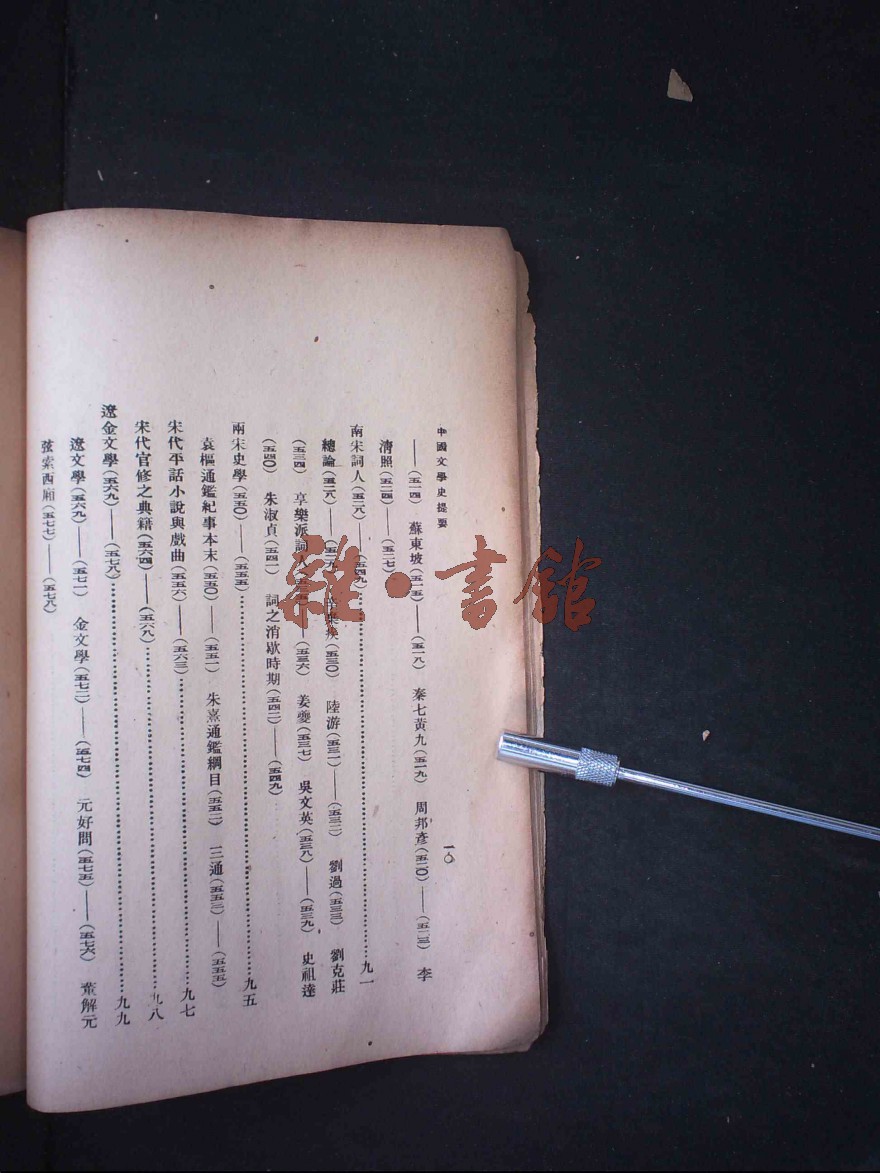 中國文學史提要
一〇
——(五一四) 蘇東坡(五一五)——(五一八) 秦七黃九(五一九) 周邦彥(五二〇)——(五二三) 李
清照(五二四)——(五二七)
南宋詞人(五二九)——(五四九)……九一
總論(五二八)——(五二九) (五三〇) 陸游(五三一)——(五三二) 劉過(五三三) 劉克莊
(五三四) 享樂派詞人——(五三六) 姜夔(五三七) 吳文英(五三八)——(五三九) 史祖達
(五四〇) 朱淑貞(五四一) 詞之消歇時期(五四二)——(五四九)
兩宋史學(五五〇)——(五五五)……九五
袁樞通鑑紀事本末(五五〇)——(五五一) 朱熹通鑑綱目(五五二) 三通(五五三)——(五五五)
宋代平話小說與戲曲(五五六)——(五六三)……九七
宋代官修之典籍(五六四)——(五六八)……九八
遼金文學(五六九)——(五七八)……九九
遼文學(五六九)——(五七一) 金文學(五七二)——(五七四) 元好問(五七五)——(五七六) 董解元
弦索西廂(五七七)——(五七八)
雜·書館